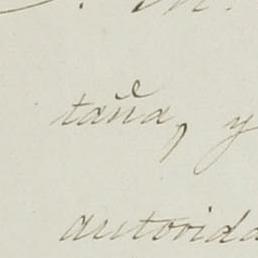 taña, y
autorida